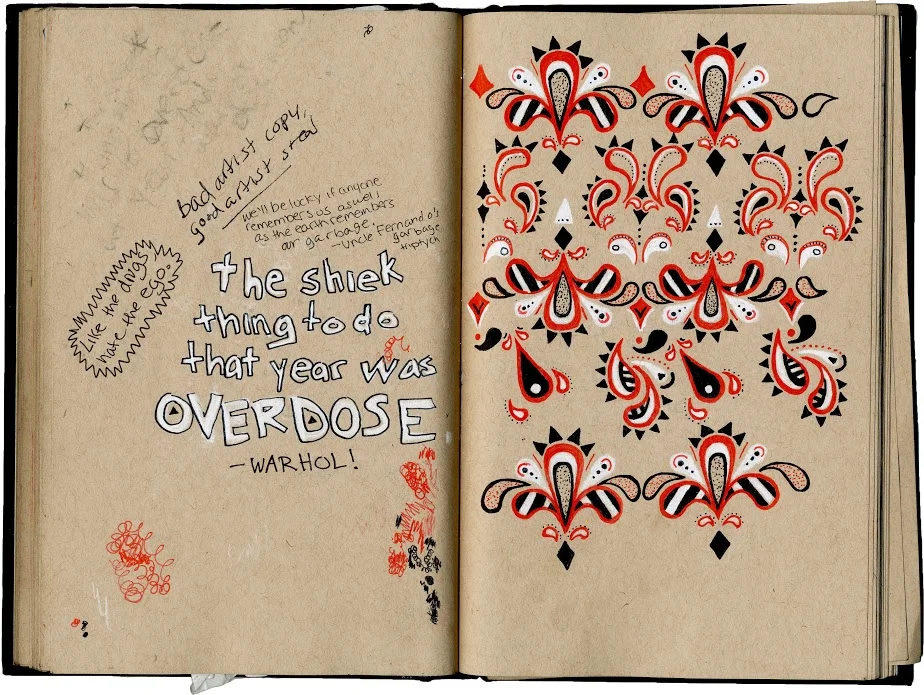 bad artist copy,
good artist steal
we'll be lucky if anyone
remembers us aswell
as the earth remembers
our garbage.
-Uncle Fernando's
garbage
triptych
Like the drugs
hate the ego.
the shiek
thing to do
that year was
OVERDOSE
-WARHOL!